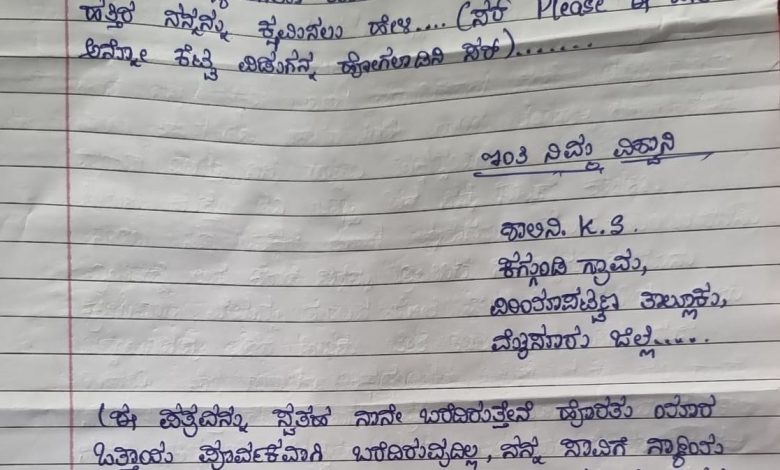 ಹತ್ತಿರ ನನ್ನನ್ನು ಕ್ಷಮಿಸಲು ಹೇಳಿ.... (ಸರ್ Please ಈ
ಕೆಟ್ಟ ಸರ್).......
ಇಂತಿ ನಿಮ್ಮ ವಿಶ್ವಾಸಿ
ಶಾಲಿನಿ. K. S.
ಕಗ್ಗುಂಡಿ ಗ್ರಾಮ,
ಪಿರಿಯಾಪಟ್ಟಣ ತಾಲ್ಲೂಕು,
ಮೈಸೂರು ಜಿಲ್ಲೆ......
(ಈ ಪತ್ರವನ್ನು ಸ್ವತಹ ನಾನೇ ಬರೆದಿರುತ್ತೇನೆ ಹೊರತು ಯಾರ
ಒತ್ತಾಯ ಪೂರ್ವಕವಾಗಿ ಬರೆದಿರುವುದಿಲ್ಲ, ನನ್ನ ಸಾವಿಗೆ